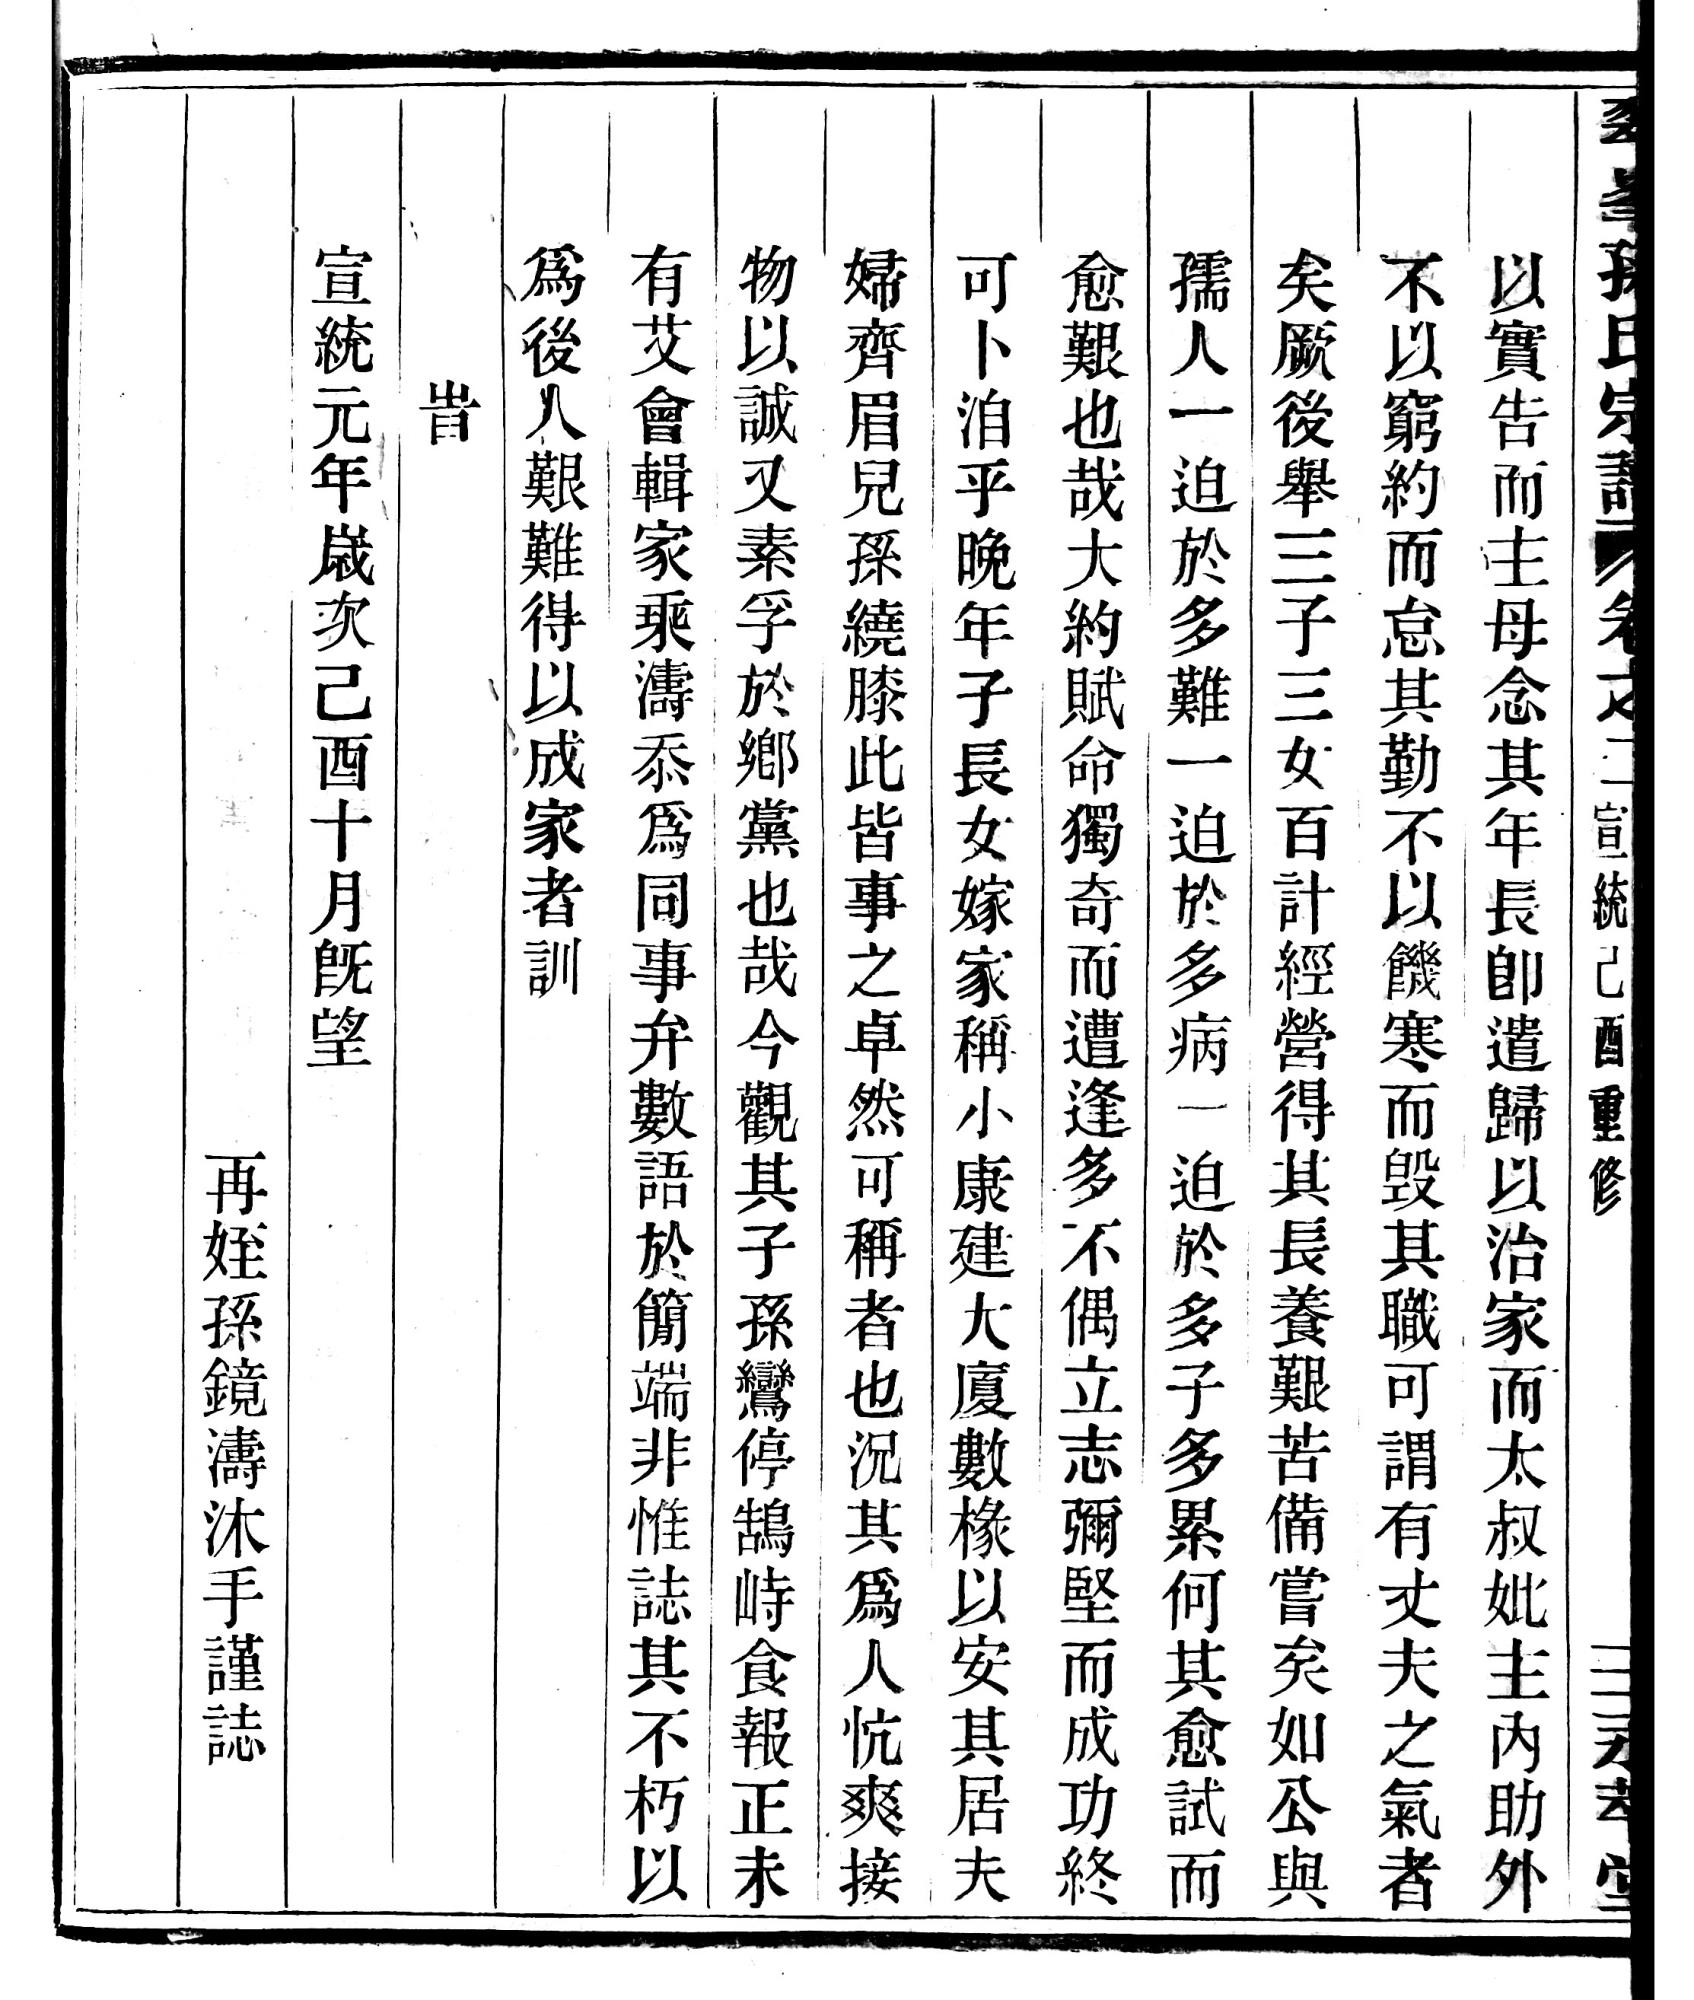 孫氏宗譜 卷之二 宣統己酉重修
以實告而主母念其年長卽遣歸以治家而太叔妣主內助外
不以窮約而怠其勤不以饑寒而毀其職可謂有丈夫之氣者
矣厥後舉三子三女百計經營得其長養艱苦備嘗矣如公與
孺人一迫於多難一迫於多病一迫於多子多累何其愈試而
愈艱也哉大約賦命獨奇而遭逢多不偶立志彌堅而成功終
可卜洎乎晚年子長女嫁家稱小康建大廈數椽以安其居夫
婦齊眉兒孫繞膝此皆事之卓然可稱者也況其爲人忼爽接
物以誠又素孚於鄉黨也哉今觀其子孫鸞停鵠峙食報正未
有艾會輯家乘濤忝爲同事弁數語於簡端非惟誌其不朽以
爲後人艱難得以成家者訓
旹
宣統元年歲次己酉十月旣望
再姪孫鏡濤沐手謹誌